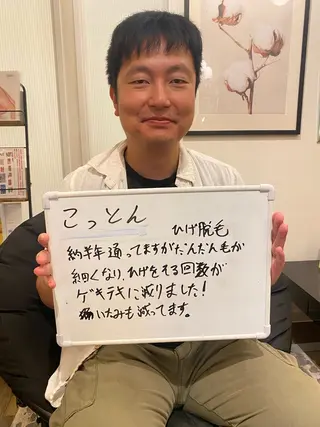 こっとん
ひげ脱毛
約半年通ってますがだんだん毛が
細くなり、ひげをそる回数が
ゲキテキに減りました！
痛いたみも減ってます。